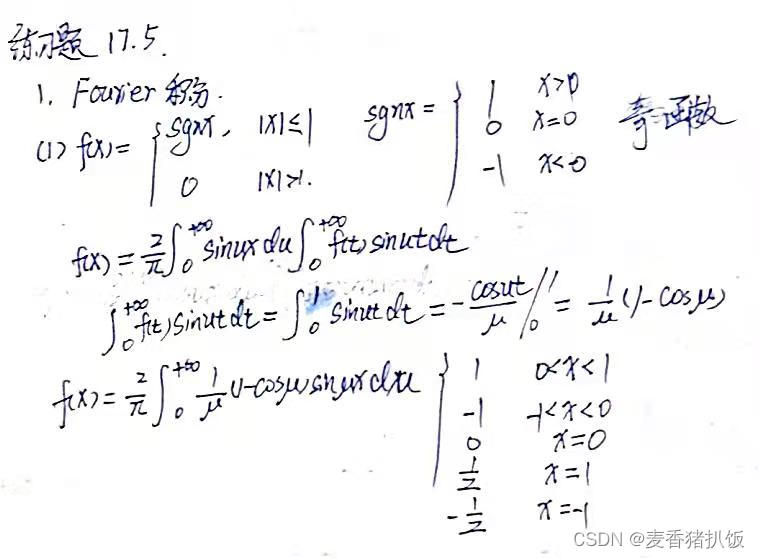 练习题 17.5.
1. Fourier 积分.
(1) f(x) = { sgnx, |x|≤1 sgnx = { 1 x>0
0 x=0 奇函数
0 |x|>1. -1 x<0
f(x) = 2/π ∫₀^{+∞} sinux du ∫₀^{+∞} f(t) sinut dt
∫₀^{+∞} f(t) sinut dt = ∫₀^1 sinut dt = - cosut/u |₀^1 = 1/u (1-cosu)
f(x) = 2/π ∫₀^{+∞} 1/u (1-cosu) sinux du { 1 0<x<1
-1 -1<x<0
0 x=0
1/2 x=1
-1/2 x=-1
CSDN @麦香猪扒饭